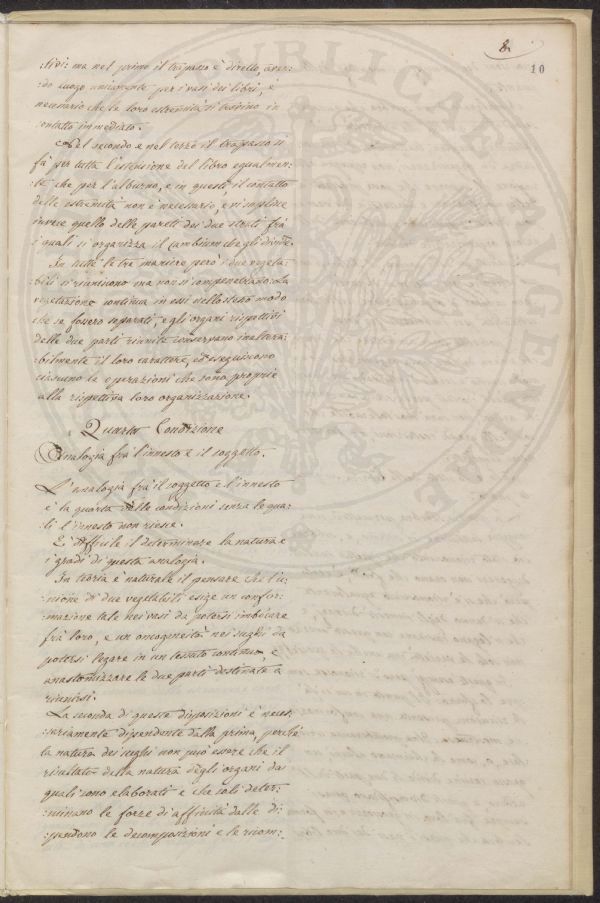 8.
10
:tivi: ma nel primo il trapasso è diretto, aven:
:do luogo unicamente per i vasi dei libri, è
necessario che le loro estremità si trovino in
contatto immediato.
Nel secondo e nel terzo il trapasso si
fà per tutta l'estensione del libro egualmen:
:te che per l'alburno, e in questi il contatto
delle estremità non è necessario, e vi supplisce
invece quello delle pareti dei due strati frà
i quali si organizza il cambium che gli divide.
In tutte le tre maniere però i due vegeta:
:bili si riuniscono ma non si compenetrano: La
vegetazione continua in essi nello stesso modo
che se fossero separati, e gli organi rispettivi
delle due parti riunite conservano inaltera:
:bilmente il loro carattere, ed eseguiscono
ciascuno le operazioni che sono proprie
alla rispettiva loro organizzazione.
Quarta Condizione
Analogia frà l'innesto e il soggetto.
L'analogia frà il soggetto e l'innesto
è la quarta delle condizioni senza le qua:
:li l'innesto non riesce.
È difficile il determinare la natura e
i gradi di questa analogia.
In teoria è naturale il pensare che l'u:
:nione di due vegetabili esige un confor:
:mazione tale nei vasi da potersi imboccare
frà loro, e un omogeneità nei sughi da
potersi legare in un tessuto continuo, e
anastomizzare le due parti destinate a
riunirsi.
La seconda di queste disposizioni è neces:
:sariamente dipendente dalla prima, perchè
la natura dei sughi non può essere che il
risultato della natura degli organi da
quali sono elaborati e che soli deter:
:minano le forze di affinità dalle di:
:pendono le decomposizioni e le ricom:
PUBLICAE